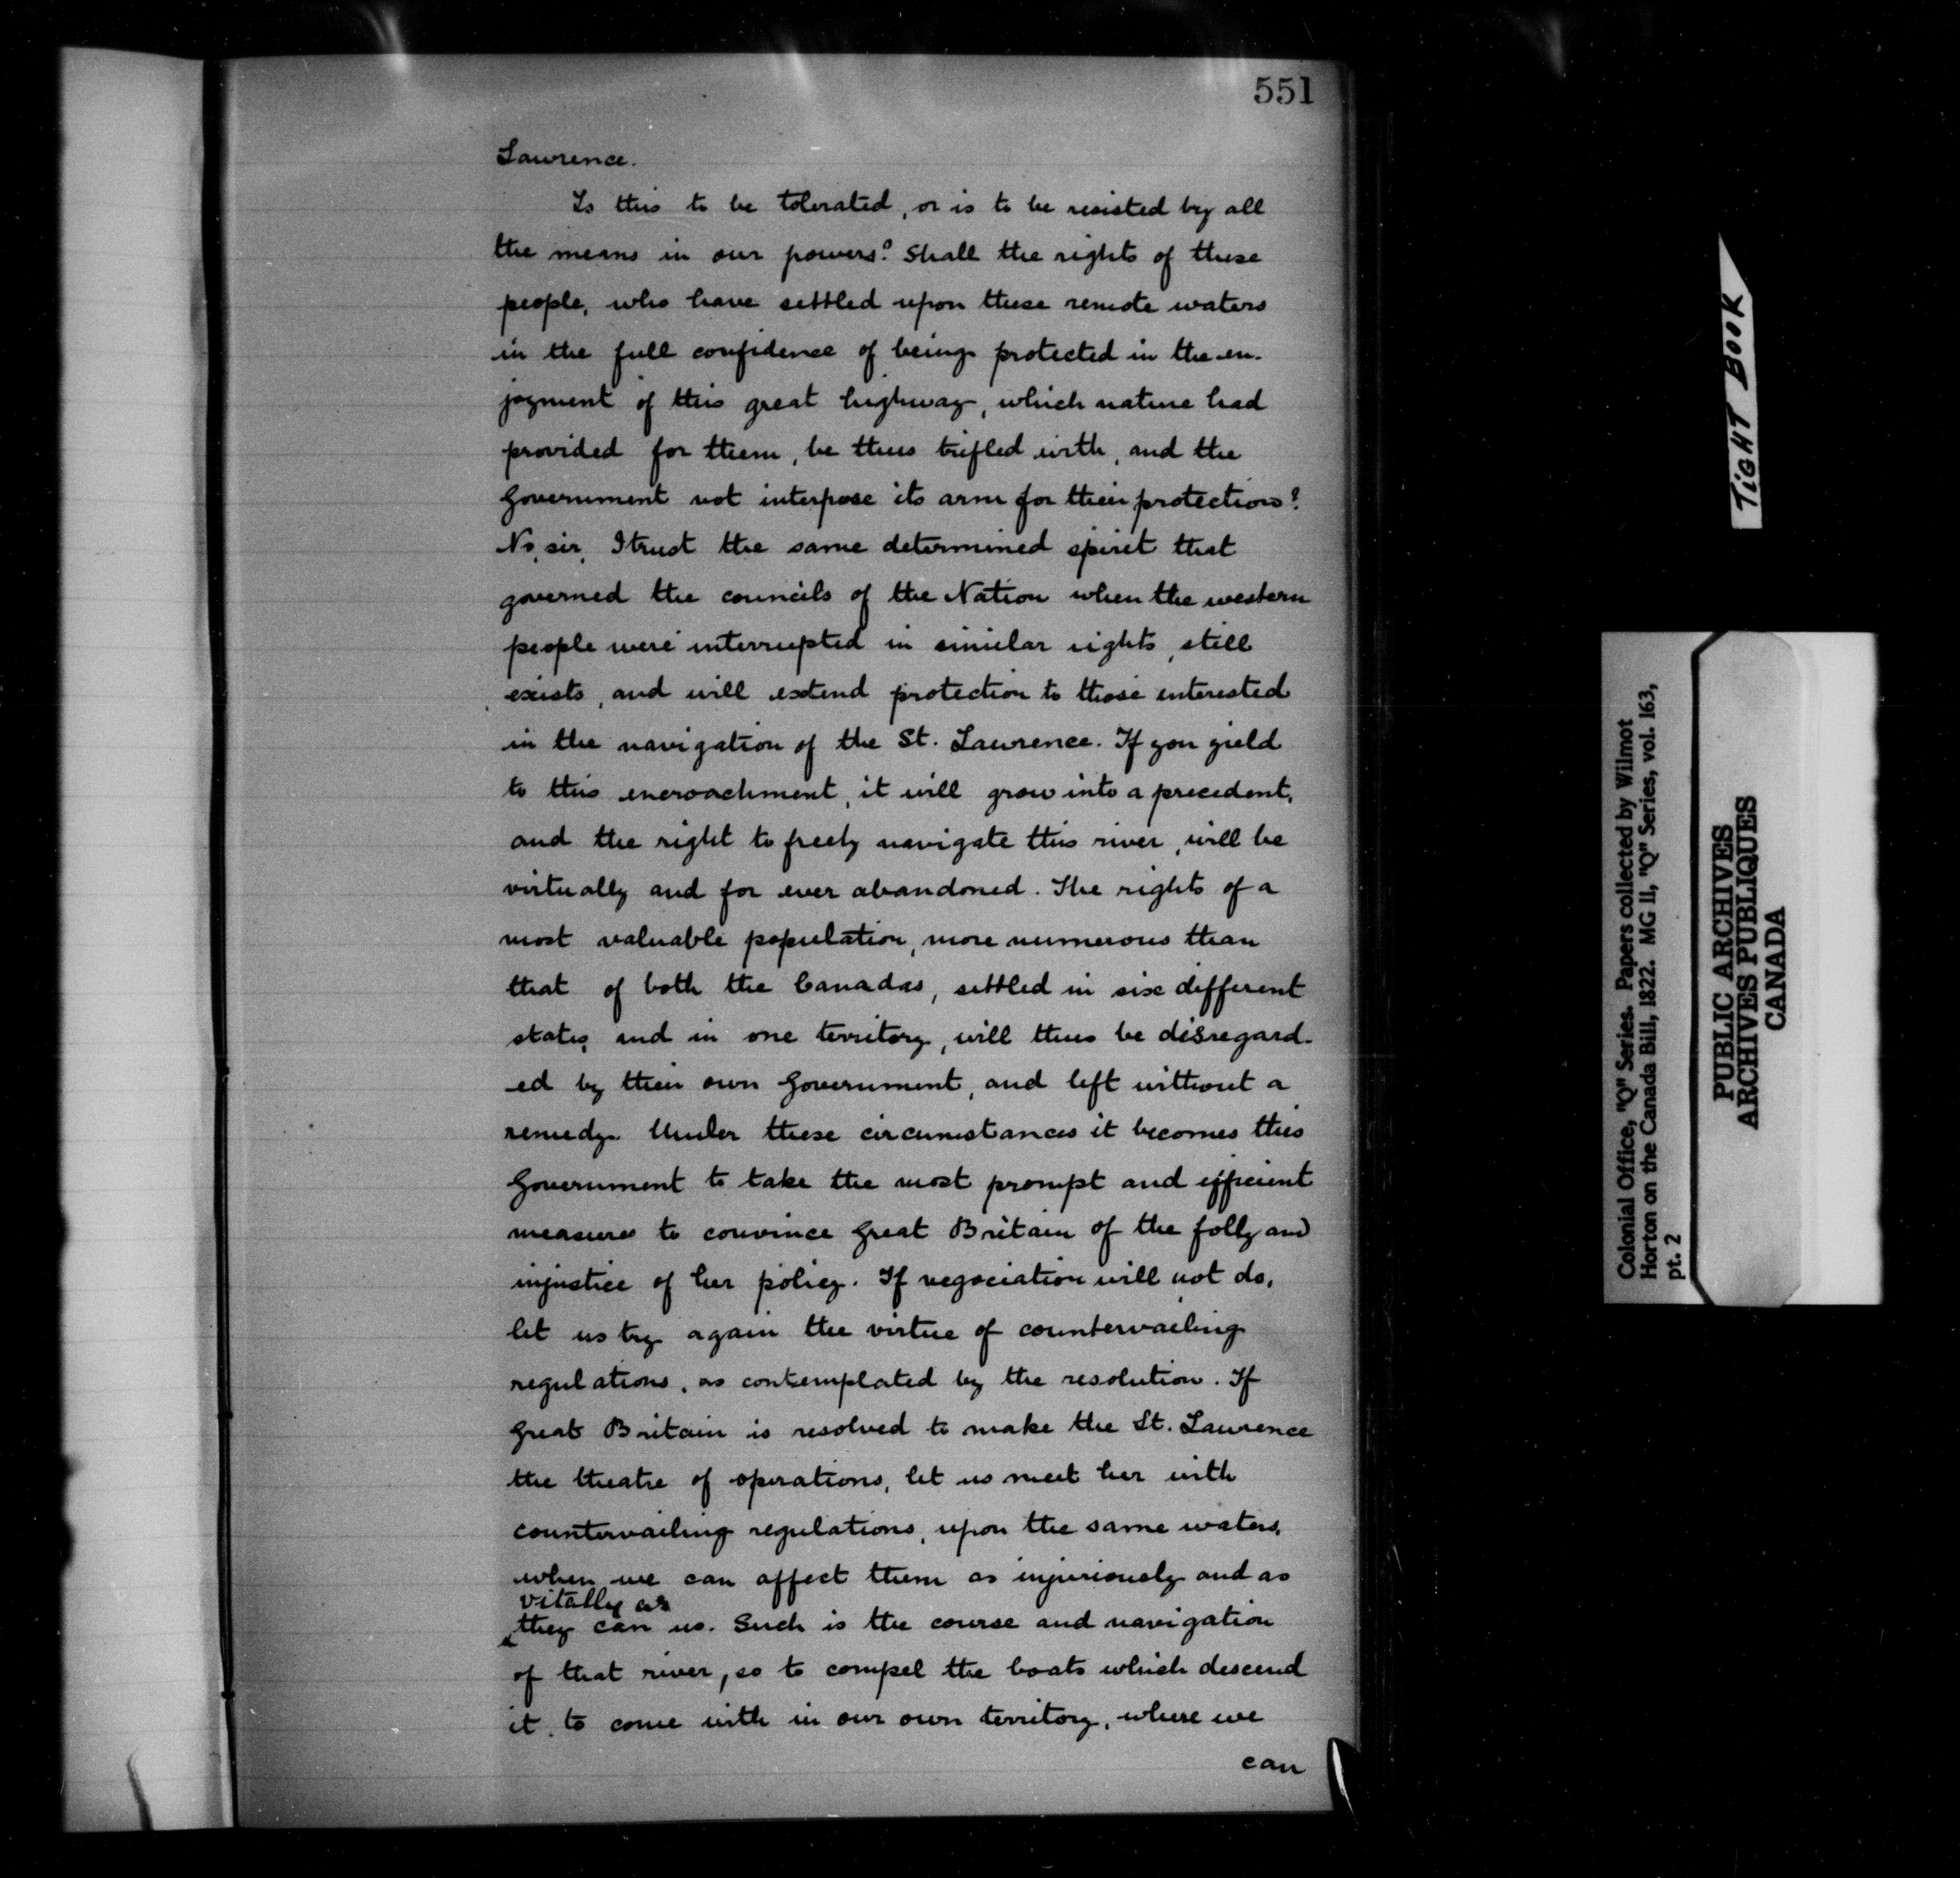 551
Lawrence.
Is this to be tolerated, or is to be resisted by all
the means in our powers? Shall the rights of these
people, who have settled upon these remote waters
in the full confidence of being protected in the en-
joyment of this great highway, which nature had
provided for them, be thus trifled with, and the
Government not interpose its arm for their protection?
No, sir, I trust the same determined spirit that
governed the councils of the Nation when the western
people were interrupted in similar rights, still
exists, and will extend protection to those interested
in the navigation of the St. Lawrence. If you yield
to this encroachment, it will grow into a precedent,
and the right to freely navigate this river, will be
virtually and for ever abandoned. The rights of a
most valuable population, more numerous than
that of both the Canadas, settled in six different
states, and in one territory, will thus be disregard-
ed by their own Government, and left without a
remedy. Under these circumstances it becomes this
Government to take the most prompt and efficient
measures to convince Great Britain of the folly and
injustice of her policy. If negociation will not do,
let us try again the virtue of countervailing
regulations, as contemplated by the resolution. If
Great Britain is resolved to make the St. Lawrence
the theatre of operations, let us meet her with
countervailing regulations, upon the same waters,
when we can affect them as injuriously and as
vitally as
they can us. Such is the course and navigation
of that river, so to compel the boats which descend
it, to come with in our own territory, where we
can
TIGHT BOOK
Colonial Office, "Q" Series. Papers collected by Wilmot
Horton on the Canada Bill, 1822. MG 11, "Q" Series, vol. 163,
pt. 2
PUBLIC ARCHIVES
ARCHIVES PUBLIQUES
CANADA